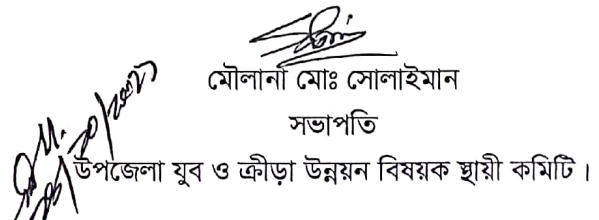 মৌলানা মোঃ সোলাইমান
সভাপতি
উপজেলা যুব ও ক্রীড়া উন্নয়ন বিষয়ক স্থায়ী কমিটি।